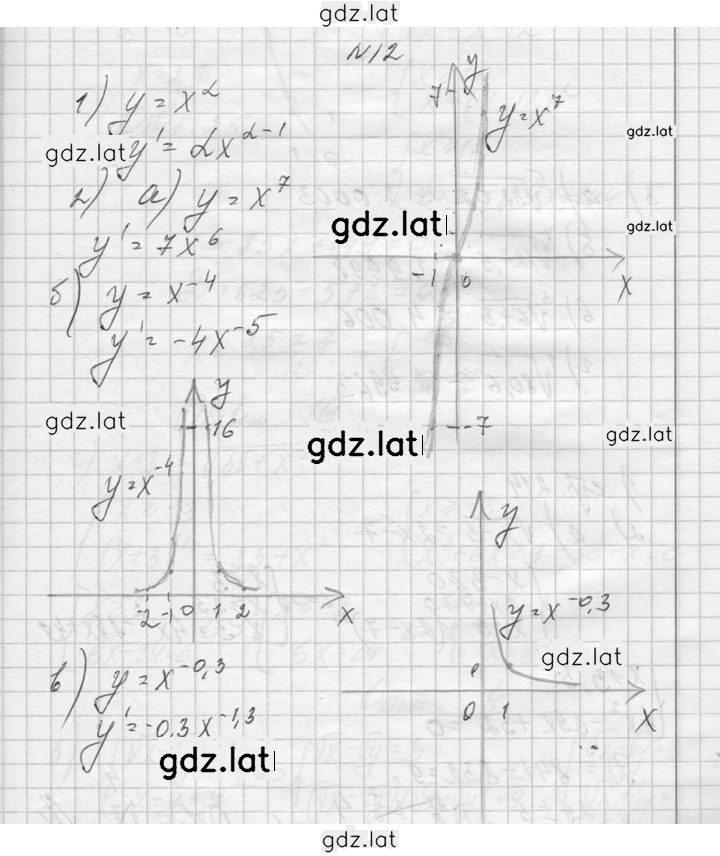 gdz.lat
N12
1) y = x^α
gdz.lat
y' = αx^(α-1)
2) а) y = x^7
y' = 7x^6
б) y = x^-4
y' = -4x^-5
gdz.lat
y
16
y = x^-4
-2 -1 0 1 2
x
в) y = x^-0,3
y' = -0.3x^-1,3
gdz.lat
y
7
y = x^7
gdz.lat
gdz.lat
gdz.lat
-1 0
x
-7
gdz.lat
gdz.lat
y
y = x^-0,3
gdz.lat
0 1
x
gdz.lat